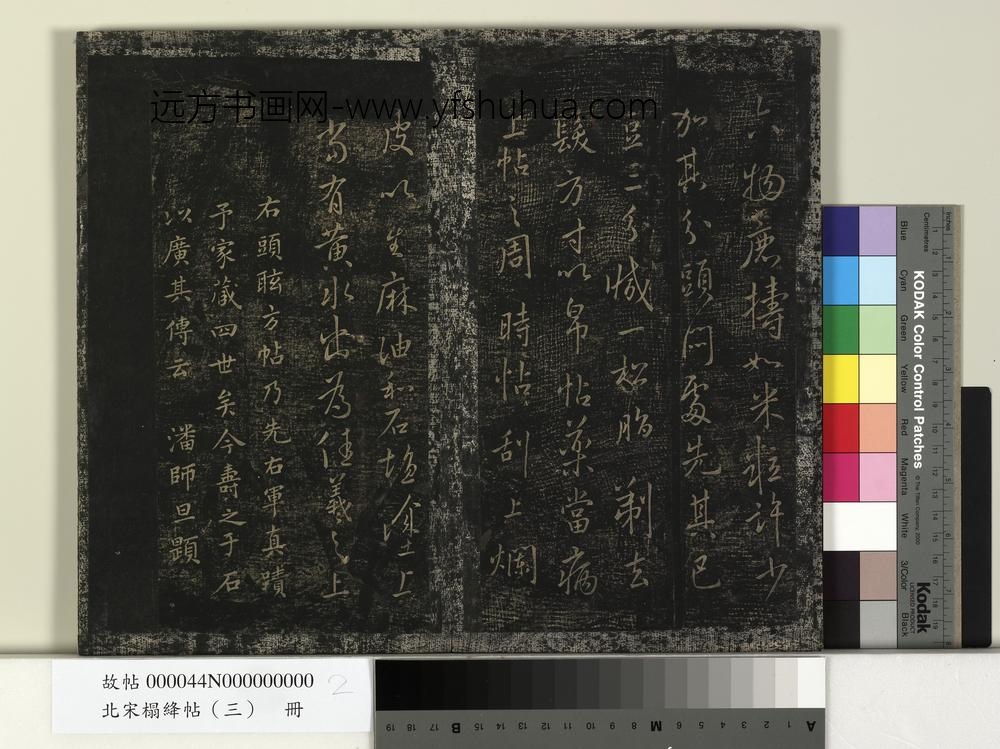 远方书画网-www.yfshuhua.com
六物麁擣如米粒許少
加其分頭悶處先其巴
豆三分減一松脂剃去
髮方寸以帛帖藥當病
上帖之周時帖刮上爛
皮以生麻油和石塩塗上
當有黃水出為佳羲之上
右頭眩方帖乃先右軍真蹟
予家藏四世矣今壽之于石
以廣其傳云 潘師旦題
KODAK Color Control Patches
© The Tiffen Company, 2000
Kodak
LICENSED PRODUCT
Inches
Centimetres
Blue
Cyan
Green
Yellow
Red
Magenta
White
3/Color
Black
故帖 000044N000000000 2
北宋榻絳帖（三） 冊
A 1 2 3 4 5 6 M 8 9 10 11 12 13 14 15 B 17 18 19